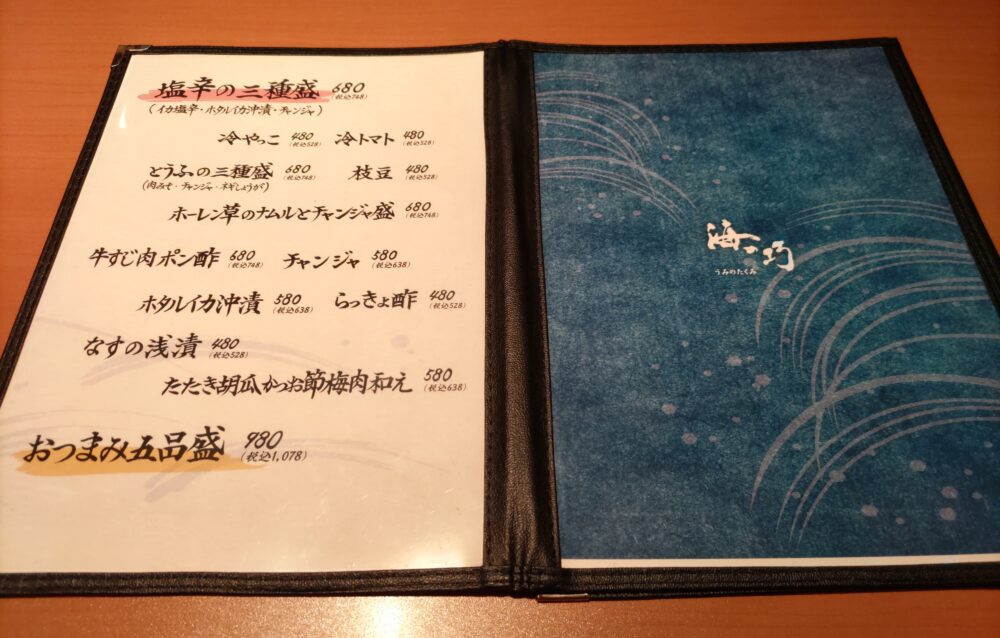 塩辛の三種盛 680 (税込748)
(イカ塩辛・ホタルイカ沖漬・チャンジャ)
冷やっこ 480 (税込528) 冷トマト 480 (税込528)
とうふの三種盛 680 (税込748) 枝豆 480 (税込528)
(肉みそ・チャンジャ・ネギしょうが)
ホーレン草のナムルとチャンジャ盛 680 (税込748)
牛すじ肉ポン酢 680 (税込748) チャンジャ 580 (税込638)
ホタルイカ沖漬 580 (税込638) らっきょ酢 480 (税込528)
なすの浅漬 480 (税込528)
たたき胡瓜かつお節梅肉和え 580 (税込638)
おつまみ五品盛 980 (税込1,078)
海 巧
うみのたくみ